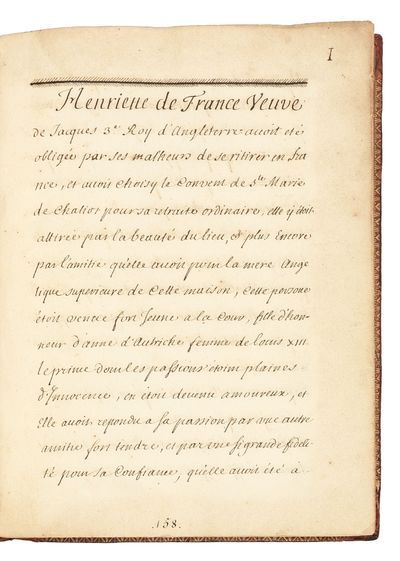 I
Henriette de France Veuve
de Jacques 3e Roy d'Angleterre avoit eté
obligée par ses malheurs de se ritirer en fra
nce, et avoit choisy le Convent de Ste Marie
de Chaliot pour sa retraite ordinaire, elle ÿ étoit
attirée par la beauté du lieu, et plus Encore
par l'amitie qu'elle avoit pour la mere Ange
lique superieure de Cette maison, Cette personne
étoit venüe fort Jeune a la Cour, fille d'hon-
neur d'anne d'Autriche femme de louis XIII
le prince dont les passions etoient plaines
d'Innocence, en étoit devenu amoureux, et
Elle avoit repondu a sa passion par une autre
amitie fort tendre, et par une si grande fideli-
té pour sa Confiance, qu'elle avoit été à
158.